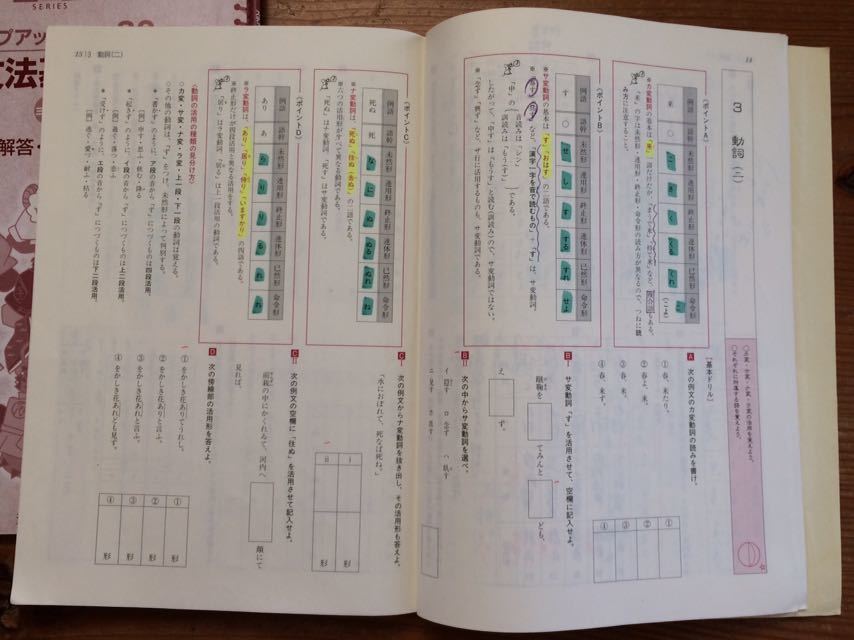 14
3 動詞(二)
○カ変・サ変・ナ変・ラ変の活用を覚えよう。
○それぞれに所属する語を覚えよう。
〔ポイントA〕
例語 語幹 未然形 連用形 終止形 連体形 已然形 命令形
来 ○ こ き く くる くれ こ(こよ)
※カ変動詞の基本は「来」一語だけだが、「まうで来」「持て来」など、複合語もある。
※「来」の字は未然形・連用形・終止形・命令形の読み方が異なるので、つねに読み方に注意すること。
〔ポイントB〕
例語 語幹 未然形 連用形 終止形 連体形 已然形 命令形
す ○ せ し す する すれ せよ
※サ変動詞の基本は「す」「おはす」の二語である。
など、「漢字一字を音で読むもの」+「す」は、サ変動詞。
「申」の音読みは「シン」、訓読みは「もうす」である。
したがって、「申す」は「もうす」と読む(訓読み)ので、サ変動詞ではない。
※「念ず」「困ず」など、ザ行に活用するものも、サ変動詞である。
〔基本ドリル〕
A 次の例文のカ変動詞の読みを書け。
①春、来たり。
②春よ、来。
③春、来。
④春、来ず。
① ② ③ ④
B Ⅰ サ変動詞「す」を活用させて、空欄に記入せよ。
蹴鞠を てみんと ども、
え ず。
B Ⅱ 次の中からサ変動詞を選べ。
イ 隠す ロ 念ず ハ 臥す
15 3 動詞(二)
〔ポイントC〕
例語 語幹 未然形 連用形 終止形 連体形 已然形 命令形
死ぬ 死 な に ぬ ぬる ぬれ ね
※ナ変動詞は、「死ぬ」「往ぬ(去ぬ)」の二語である。
※六つの活用形がすべて異なる動詞である。
※「死ぬ」はナ変動詞、「死す」はサ変動詞である。
〔ポイントD〕
例語 語幹 未然形 連用形 終止形 連体形 已然形 命令形
あり あ ら り り る れ れ
※ラ変動詞は、「あり」「居り」「侍り」「いますかり」の四語である。
※終止形だけが四段活用と異なる活用をする。
※「居り」はラ変動詞、「居る」は上一段活用の動詞である。
〈動詞の活用の種類の見分け方〉
○カ変・サ変・ナ変・ラ変・上一段・下一段の動詞は覚える。
○その他の動詞は、「ず」をつけ、未然形によって判別する。
*「書かず」のように、ア段の音から「ず」につづくものは四段活用。
〔例〕申す・思ふ・飲む・降る
*「起きず」のように、イ段の音から「ず」につづくものは上二段活用。
〔例〕過ぐ・落つ・恋ふ
*「受けず」のように、エ段の音から「ず」につづくものは下二段活用。
〔例〕逃ぐ・愛づ・耐ふ・枯る
C Ⅰ 次の例文からナ変動詞を抜き出し、その活用形も答えよ。
「水におぼれて、死なば死ね。」
Ⅰ Ⅱ
形 形
C Ⅱ 次の例文の空欄に「往ぬ」を活用させて記入せよ。
前栽の中にかくれゐて、河内へ 顔にて
見れば、
D 次の傍線部の活用形を答えよ。
①をかしき花ありてうれし。
②をかしき花ありと言ふ。
③をかしき花あれと言ふ。
④をかしき花あれども見ず。
① ② ③ ④
形 形 形 形
SERIES